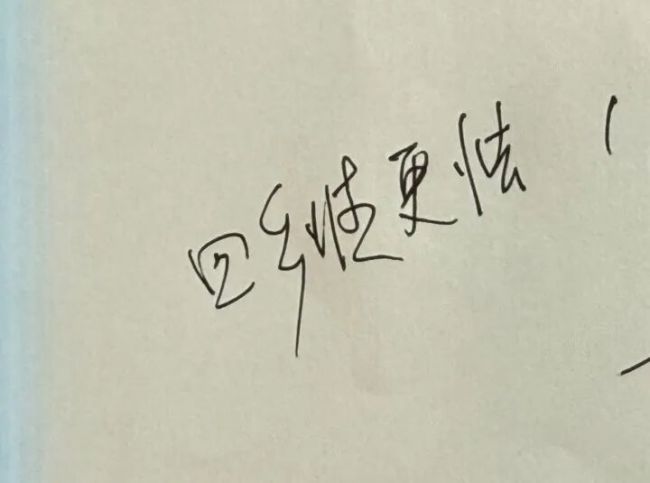 回乡情更怯